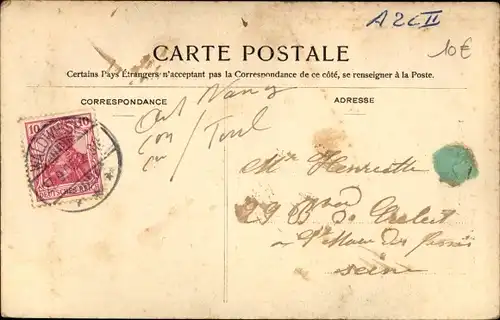 A2CII
10€
CARTE POSTALE
Certains Pays Étrangers n'acceptant pas la Correspondance de ce côté, se renseigner à la Poste.
CORRESPONDANCE
ADRESSE
Nancy
Toul
10
DEUTSCHES REICH
Henriette
29 B
St Maur des Fossés
Seine